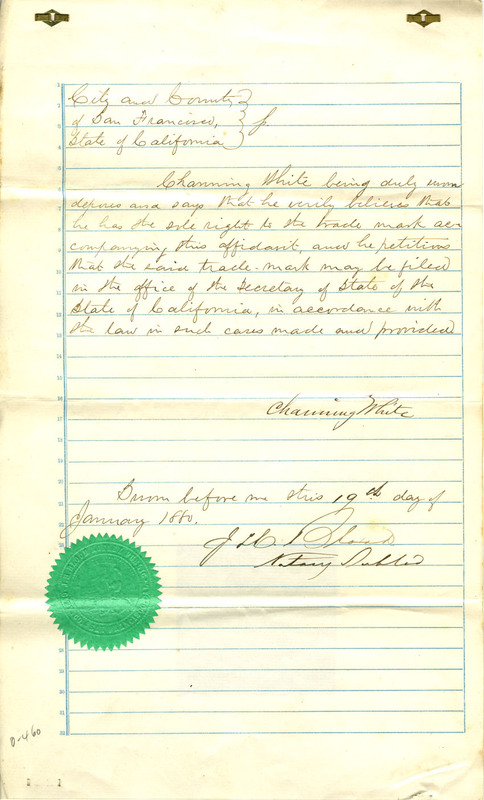 City and County
of San Francisco,
State of California
Channing White being duly sworn
deposes and says that he verily believes that
he has the sole right to the trade mark ac-
companying this affidavit, and he petitions
that the said trade-mark may be filed
in the office of the Secretary of State of the
State of California, in accordance with
the law in such cases made and provided
Channing White
Sworn before me this 19th day of
January 1880.
Notary Public
0-460